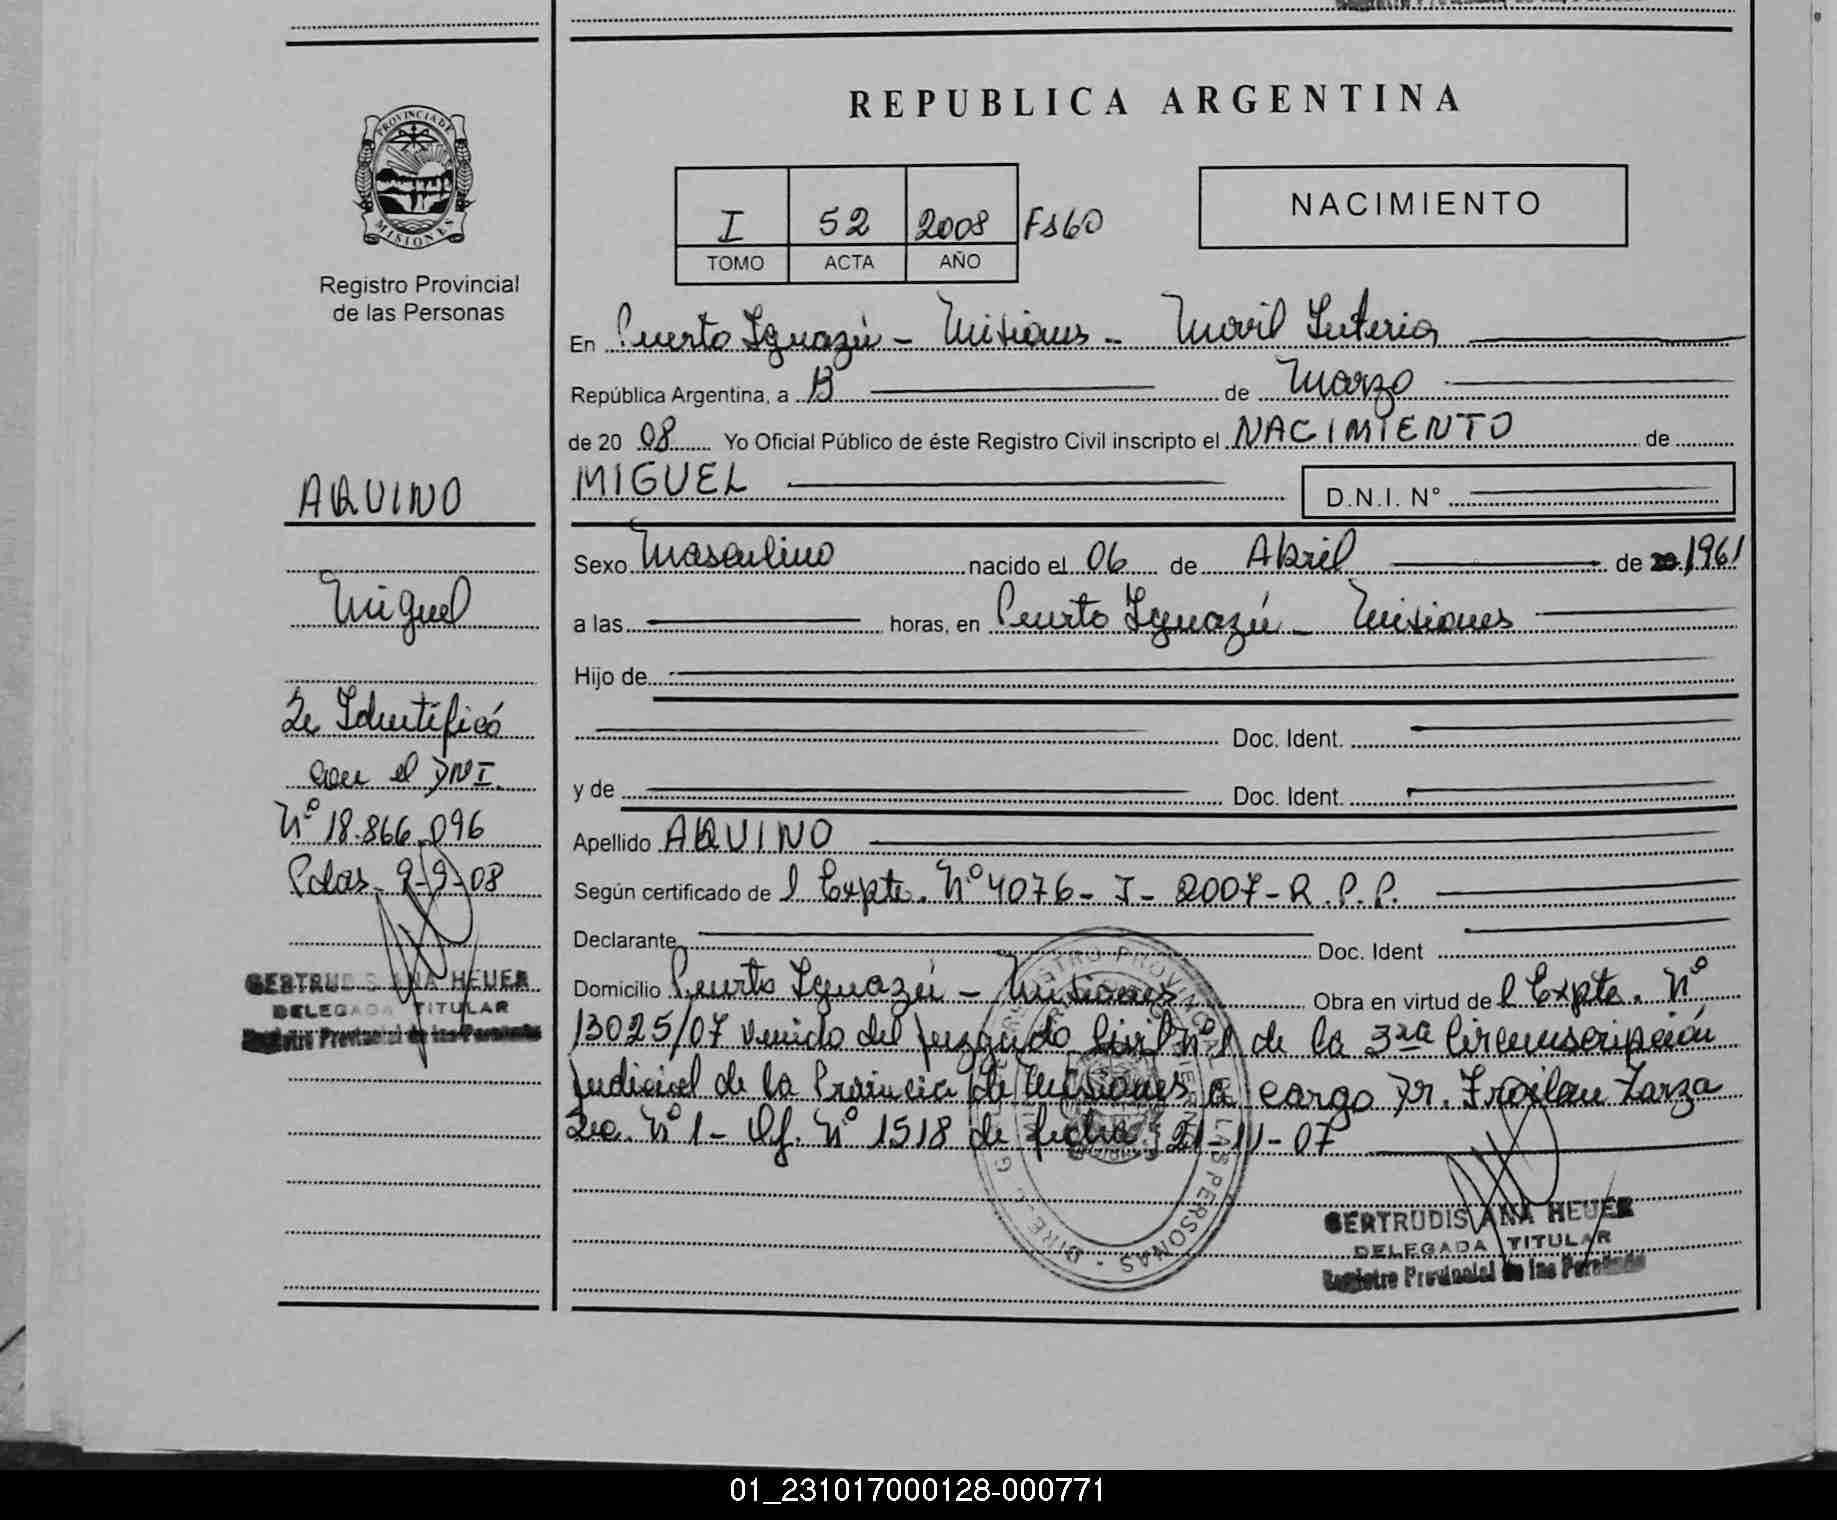 REPUBLICA ARGENTINA
PROVINCIA DE MISIONES
Registro Provincial
de las Personas
I 52 2008 Fs 60
TOMO ACTA AÑO
NACIMIENTO
En Puerto Iguazú - Misiones - Movil Interior
República Argentina, a 13 de Marzo
de 20 08 Yo Oficial Público de éste Registro Civil inscripto el NACIMIENTO de
MIGUEL D.N.I. N°
Sexo Masculino nacido el 06 de Abril de 1961
a las horas, en Puerto Iguazú - Misiones
Hijo de
Doc. Ident.
y de Doc. Ident.
Apellido AQUINO
Según certificado de l Expte. N° 4076 - I - 2007 - R.P.P.
Declarante Doc. Ident
Domicilio Puerto Iguazú - Misiones Obra en virtud de l Expte. N°
13025/07 venido del Juzgado Civil N° 1 de la 3ra Circunscripción
Judicial de la Provincia de Misiones a cargo Dr. Froilan Zarza
Sec. N° 1 - Of. N° 1518 de fecha 21-11-07
GERTRUDIS ANA HEUER
DELEGADA TITULAR
Registro Provincial de las Personas
AQUINO
Miguel
Se Identificó
con el DNI.
N° 18.866.096
Pdas. 9-9-08
GERTRUDIS ANA HEUER
DELEGADA TITULAR
Registro Provincial de las Personas
01_231017000128-000771